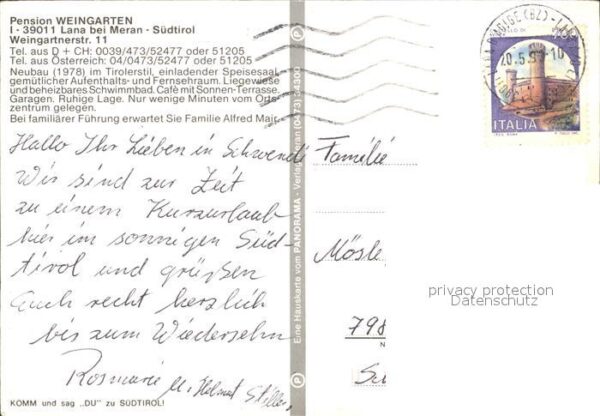 Pension WEINGARTEN
I - 39011 Lana bei Meran - Südtirol
Weingartnerstr. 11
Tel. aus D + CH: 0039/473/52477 oder 51205
Tel. aus Österreich: 04/0473/52477 oder 51205
Neubau (1978) im Tirolerstil, einladender Speisesaal,
gemütlicher Aufenthalts- und Fernsehraum. Liegewiese
und beheizbares Schwimmbad. Café mit Sonnen-Terrasse.
Garagen. Ruhige Lage. Nur wenige Minuten vom Orts-
zentrum gelegen.
Bei familiärer Führung erwartet Sie Familie Alfred Mair.
Hallo Ihr Lieben in Schwendi
Wir sind zur Zeit
zu einem Kurzurlaub
hier im sonnigen Süd-
tirol und grüßen
Euch recht herzlich
bis zum Wiedersehn
Rosmarie u. Helmut
KOMM und sag „DU" zu SÜDTIROL!
Eine Hauskarte vom PANORAMA - Verlag, Meran (0473)
Familie
Mösle
798
ITALIA
privacy protection
Datenschutz